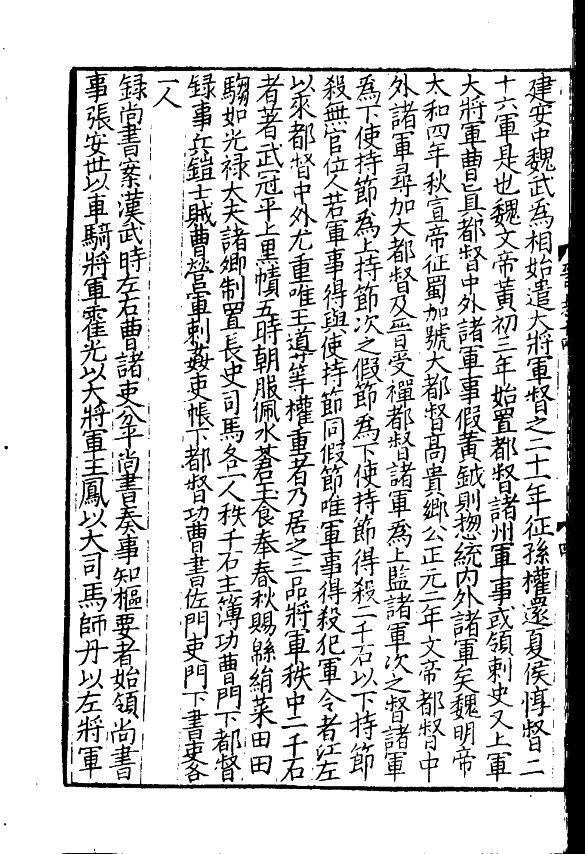 建安中魏武為相始遣大將軍督之二十一年征孫權還夏侯惇督二
十六軍是也魏文帝黃初三年始置都督諸州軍事或領刺史又上軍
大將軍曹真都督中外諸軍事假黃鉞則揔統內外諸軍矣魏明帝
太和四年秋宣帝征蜀加號大都督高貴鄉公正元二年文帝都督中
外諸軍尋加大都督及晉受禪都督諸軍為上監諸軍次之督諸軍
為下使持節為上持節次之假節為下使持節得殺二千石以下持節
殺無官位人若軍事得與使持節同假節唯軍事得殺犯軍令者江左
以來都督中外尤重唯王導等權重者乃居之三品將軍秩中二千石
者著武冠平上黑幘五時朝服佩水蒼玉食奉春秋賜緜絹菜田田
騶如光祿大夫諸卿制置長史司馬各一人秩千石主簿功曹門下都督
録事兵鎧士賊曹營軍刺姦吏帳下都督功曹書佐門吏門下書吏各
一人
録尚書案漢武時左右曹諸吏分平尚書奏事知樞要者始領尚書
事張安世以車騎將軍霍光以大將軍王鳳以大司馬師丹以左將軍